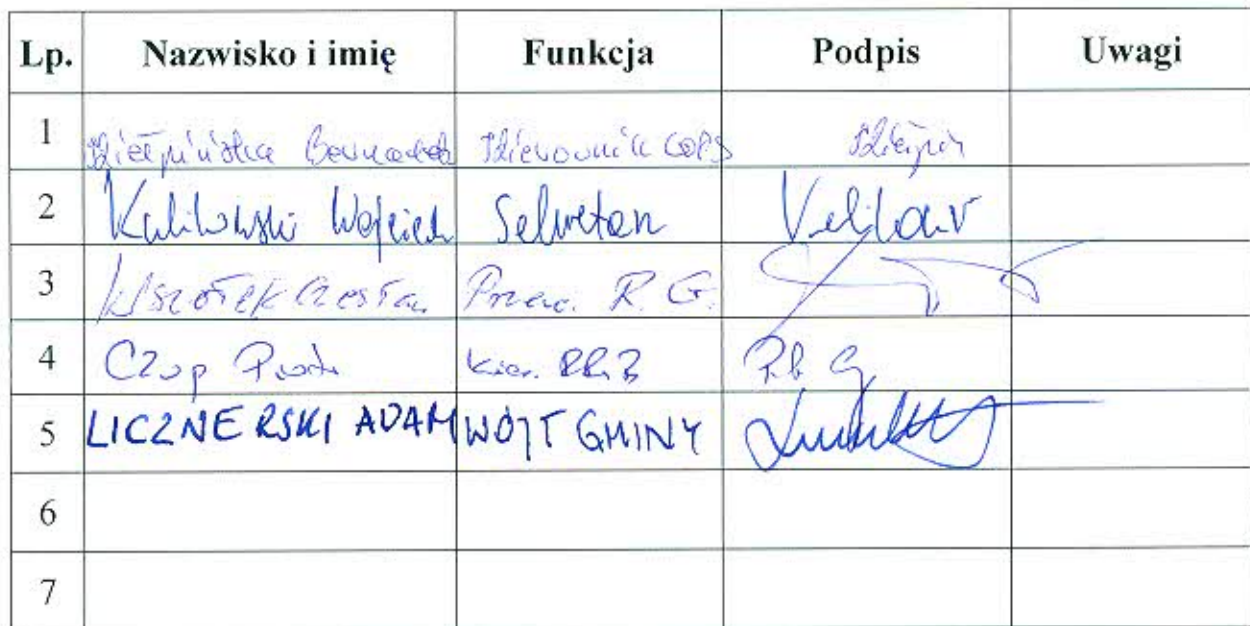 Lp. Nazwisko i imię Funkcja Podpis Uwagi
1 Bernadeta Kierownik GOPS
2 Kulikowski Wojciech Sekretarz
3 Wszołek Czesław Przew. R. G.
4 Czup Piotr Kier. RRB
5 LICZNERSKI ADAM WÓJT GMINY
6
7